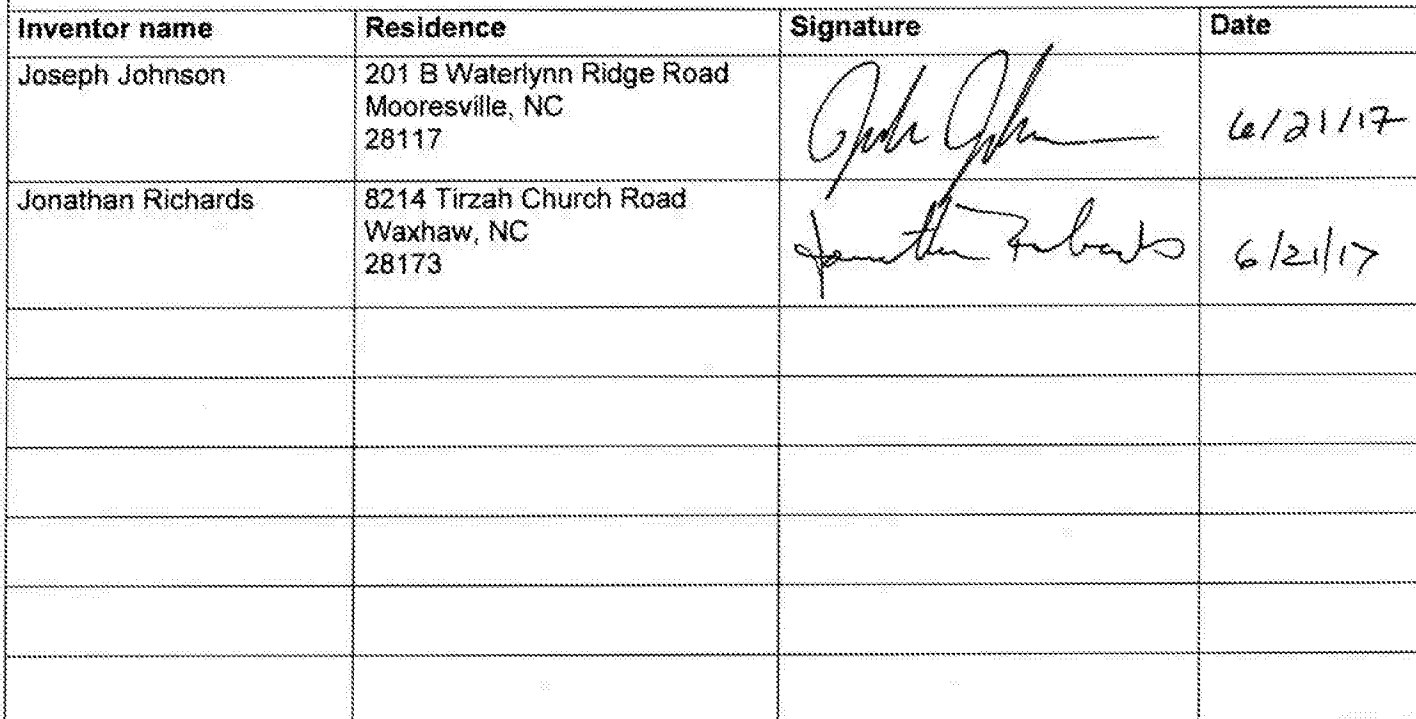 Inventor name Residence Signature Date
Joseph Johnson 201 B Waterlynn Ridge Road
Mooresville, NC
28117
6/21/17
Jonathan Richards 8214 Tirzah Church Road
Waxhaw, NC
28173
Jonathan Richards 6/21/17